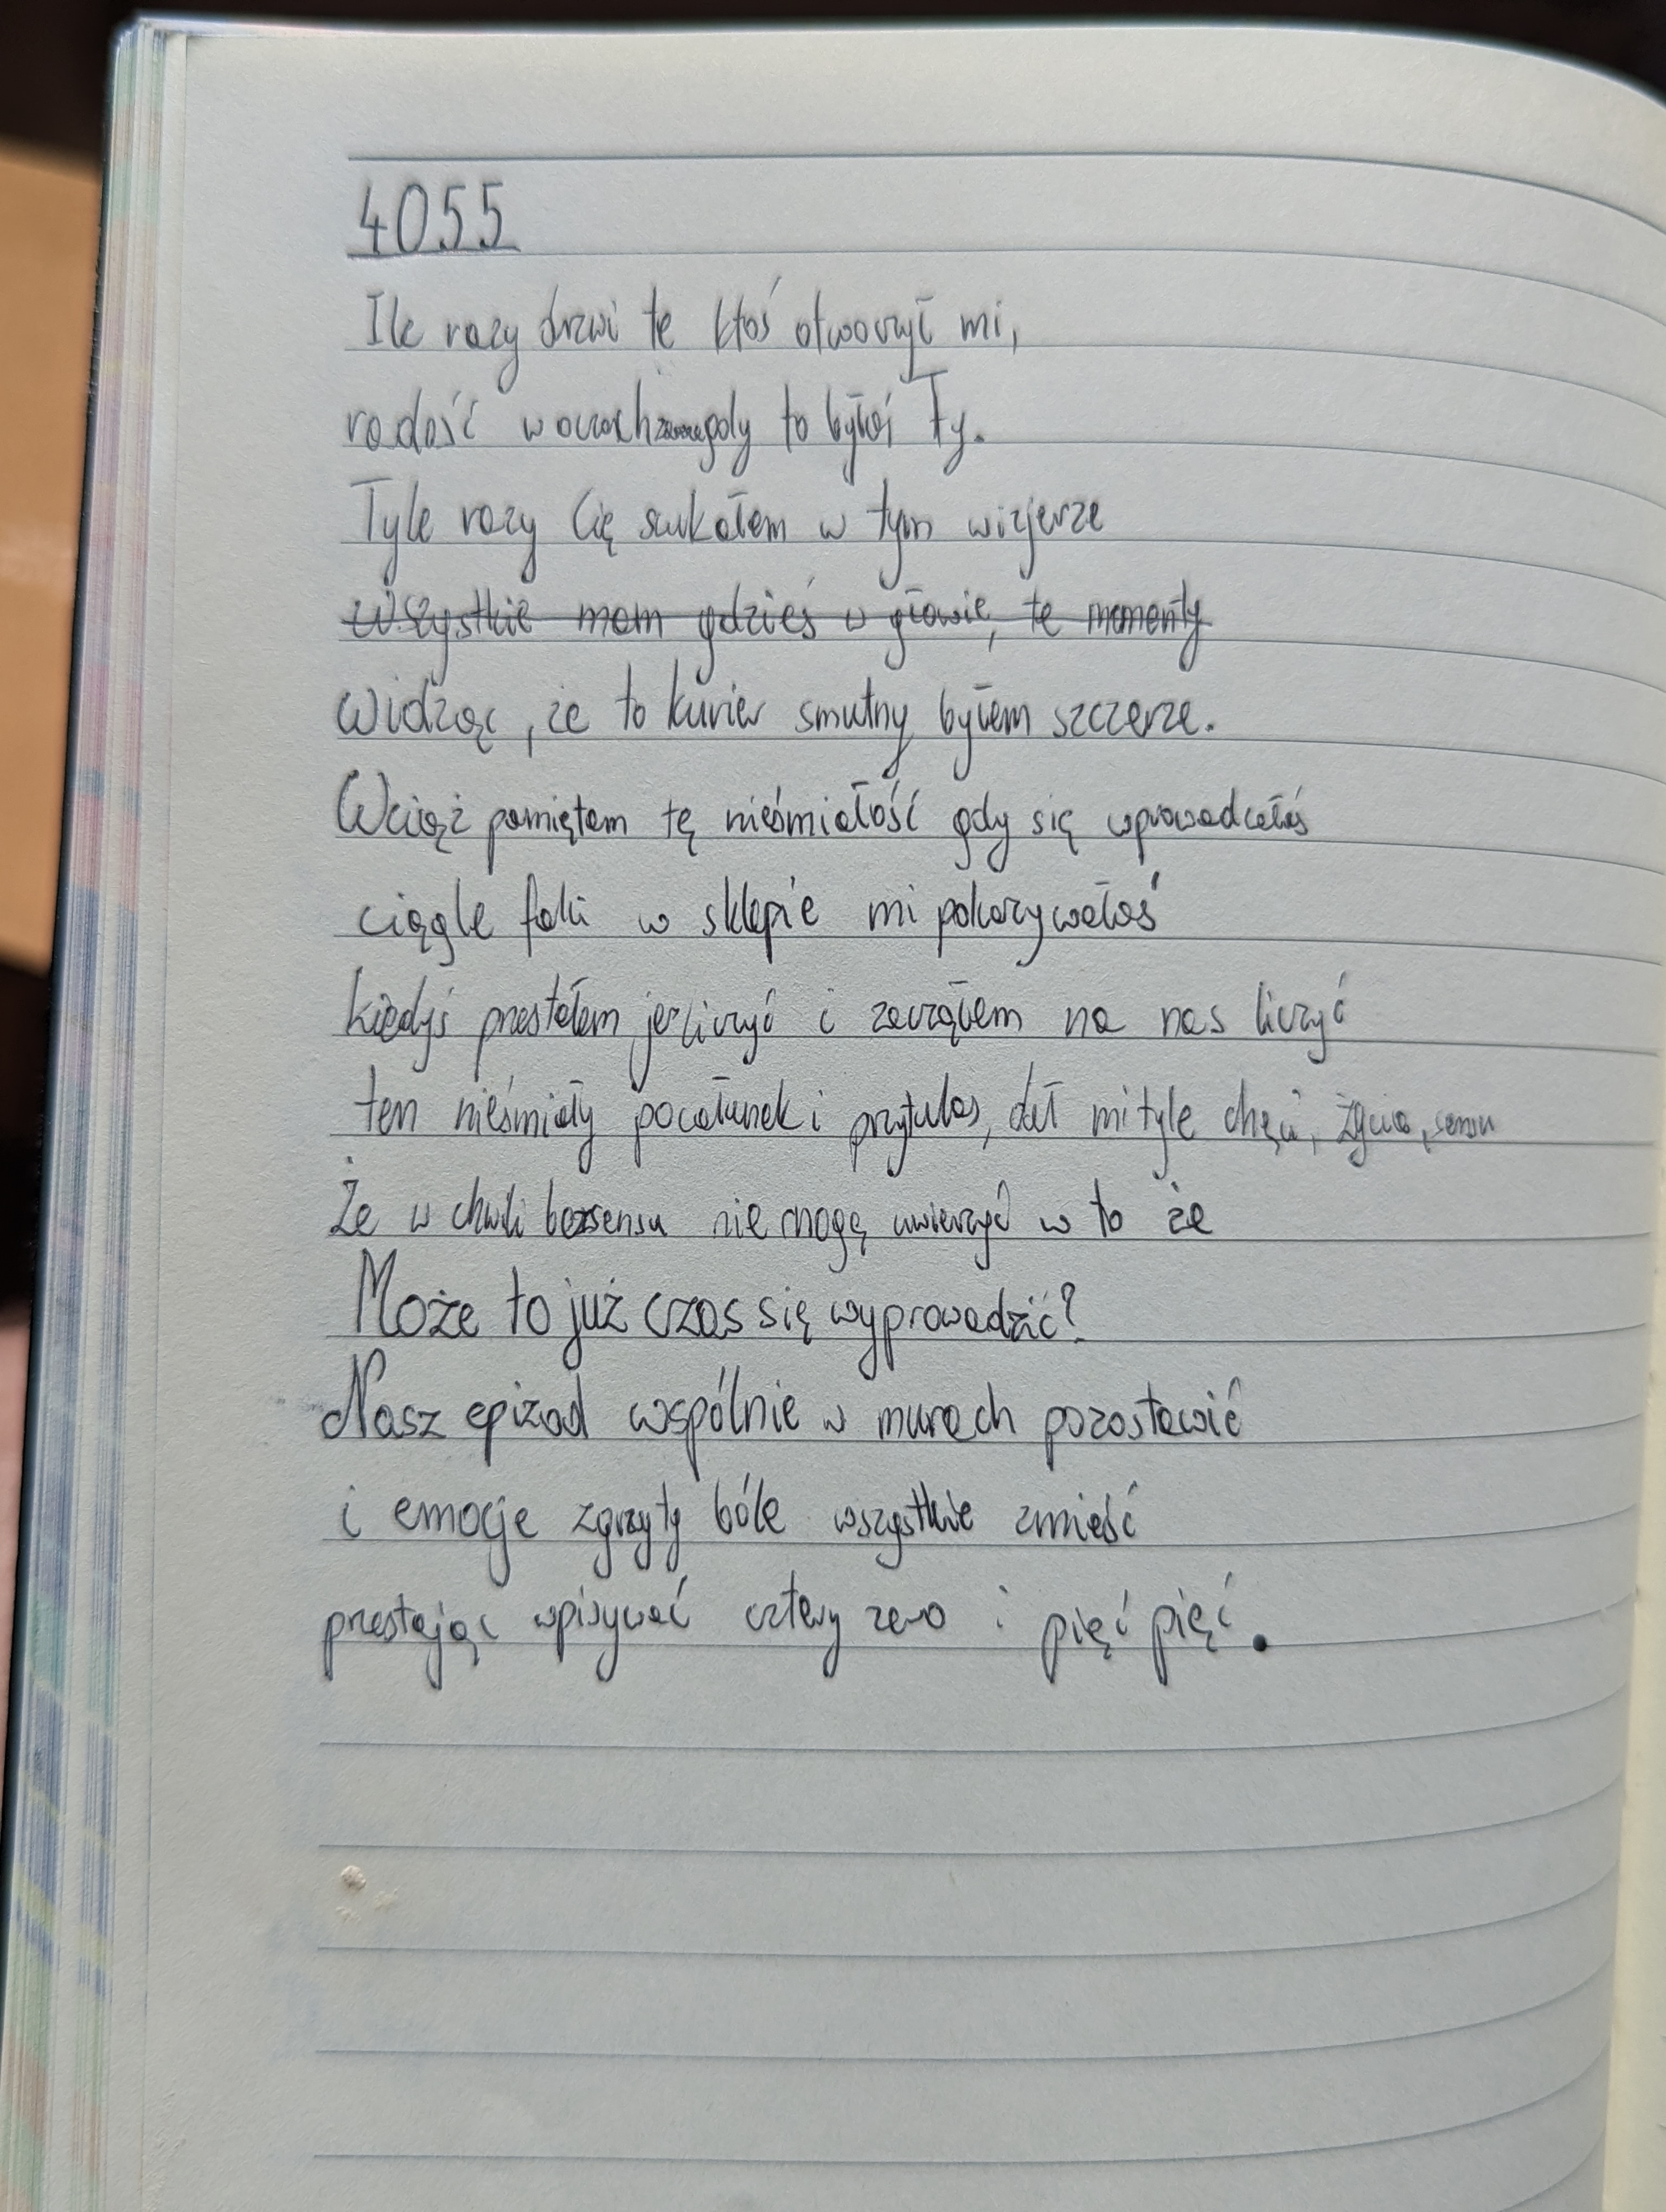 4055
Ile razy drzwi te ktoś otworzył mi,
radość w oczach gdy to byłaś Ty.
Tyle razy Cię szukałem w tym wizjerze
Wszystkie mam gdzieś w głowie, te momenty
Widząc, że to kurier smutny byłem szczerze.
Wciąż pamiętam tę nieśmiałość gdy się wprowadzałaś
ciągle foki w sklepie mi pokazywałaś
kiedyś przestałem je liczyć i zacząłem na nas liczyć
ten nieśmiały pocałunek i przytulas, dał mi tyle chęci, życia, sensu
Że w chwili bezsensu nie mogę uwierzyć w to że
Może to już czas się wyprowadzić?
Nasz epizod wspólnie w murach pozostawić
i emocje zgrzyty bóle wszystkie zmieść
przestając wpisywać cztery zero i pięć pięć.